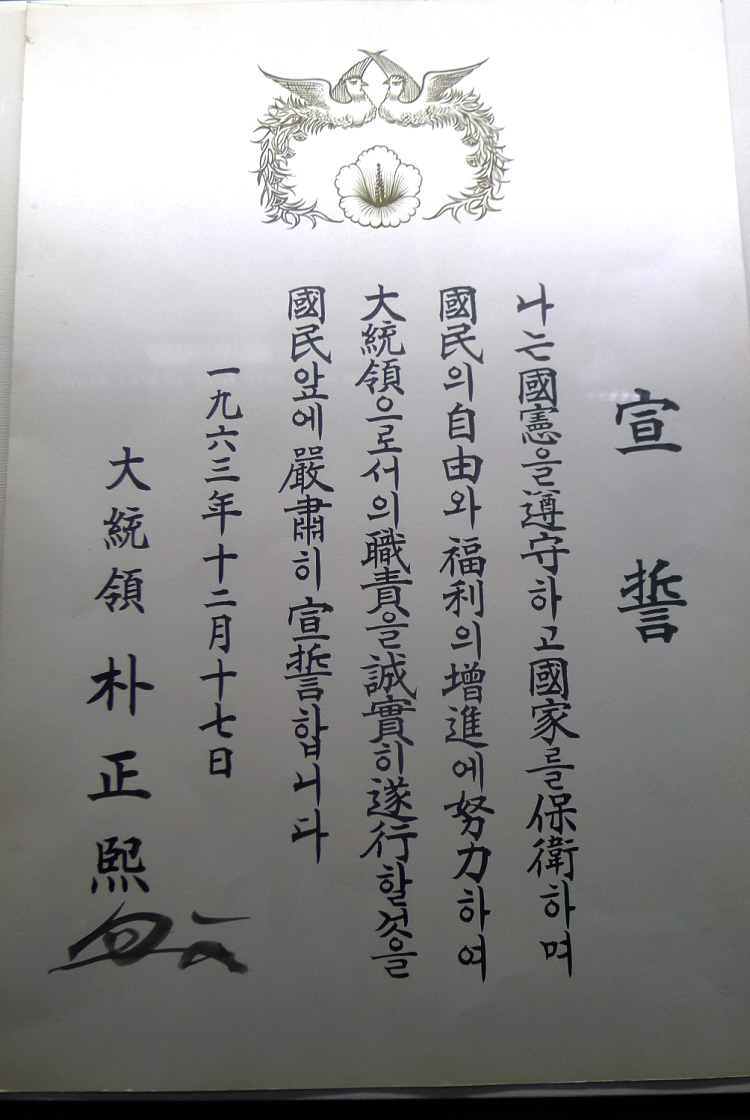 宣誓
나는國憲을遵守하고國家를保衛하며
國民의自由와福利의增進에努力하여
大統領으로서의職責을誠實히遂行할것을
國民앞에嚴肅히宣誓합니다
一九六三年十二月十七日
大統領 朴正熙